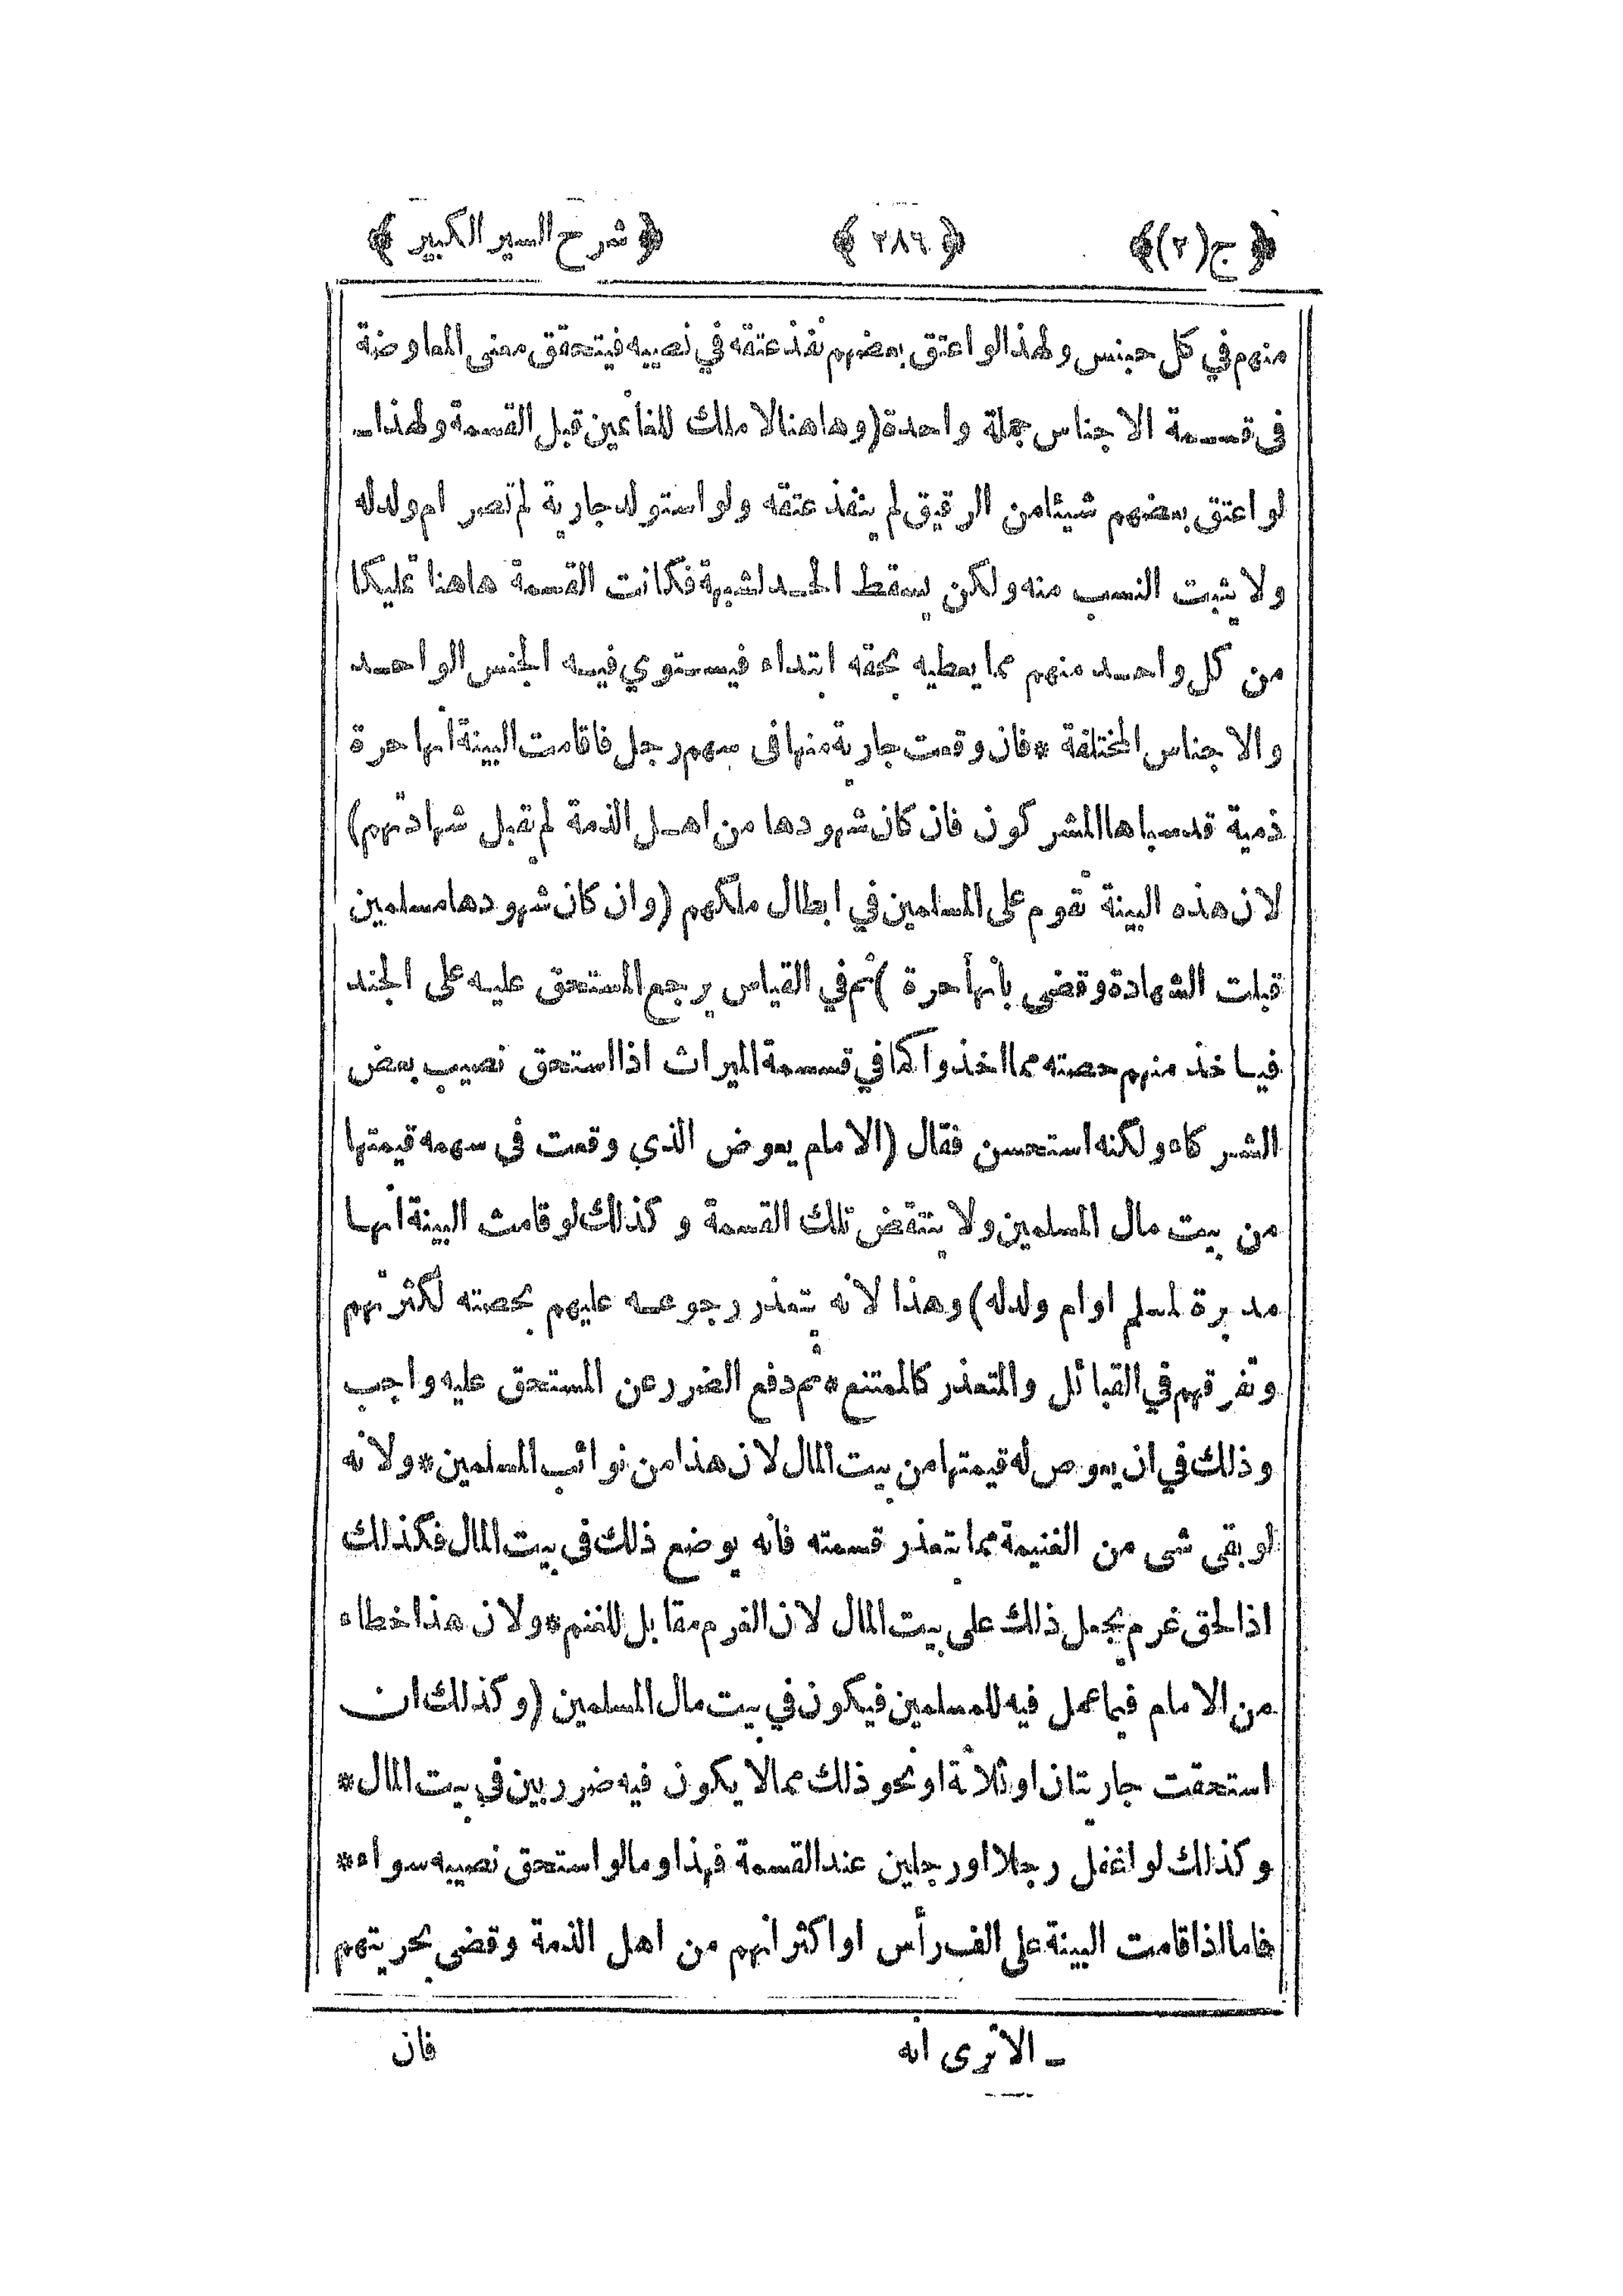 ﴿ ج(٢)﴾ ﴿ ٢٨٦ ﴾ ﴿ شرح السير الكبير ﴾
منهم في كل جنس ولهذا لو اعتق بعضهم نفذ عتقه في نصيبه فيتحقق معنى المعاوضة
فى قسمة الاجناس جملة واحدة (وهاهنا لا ملك للغانمين قبل القسمة ولهذا ـ
لو اعتق بعضهم شيئا من الرقيق لم ينفذ عتقه ولو استولد جارية لم تصر ام ولد له
ولا يثبت النسب منه ولكن يسقط الحد لشبهة فكانت القسمة هاهنا تمليكا
من كل واحد منهم مما يعطيه بحقه ابتداء فيستوي فيه الجنس الواحد
والاجناس المختلفة * فان وقعت جارية منها فى سهم رجل فاقامت البينة انها حرة
ذمية قد سباها المشركون فان كان شهودها من اهل الذمة لم تقبل شهادتهم)
لان هذه البينة تقوم على المسلمين في ابطال ملكهم (وان كان شهودها مسلمين
قبلت الشهادة وقضى بانها حرة ) ثم في القياس يرجع المستحق عليه على الجند
فياخذ منهم حصته مما اخذوا كما في قسمة الميراث اذا استحق نصيب بعض
الشركاء ولكنه استحسن فقال (الامام يعوض الذي وقعت في سهمه قيمتها
من بيت مال المسلمين ولا ينتقض تلك القسمة و كذلك لو قامت البينة انها
مدبرة لمسلم او ام ولد له) وهذا لانه يتعذر رجوعه عليهم بحصته لكثرتهم
وتفرقهم في القبائل والمتعذر كالممتنع * ثم دفع الضرر عن المستحق عليه واجب
وذلك في ان يعوض له قيمتها من بيت المال لان هذا من نوائب المسلمين * ولانه
لو بقى شى من الغنيمة مما يتعذر قسمته فانه يوضع ذلك في بيت المال فكذلك
اذا لحق غرم يجعل ذلك على بيت المال لان الغرم مقابل للغنم * ولان هذا خطاء
من الامام فيما عمل فيه للمسلمين فيكون في بيت مال المسلمين (وكذلك ان
استحقت جاريتان او ثلاثة او نحو ذلك مما لا يكون فيه ضرر بين في بيت المال *
وكذلك لو اغفل رجلا او رجلين عند القسمة فهذا وما لو استحق نصيبه سواء *
فاما اذا قامت البينة على الف رأس او اكثر انهم من اهل الذمة وقضى بحريتهم
ـ الا ترى انه فان